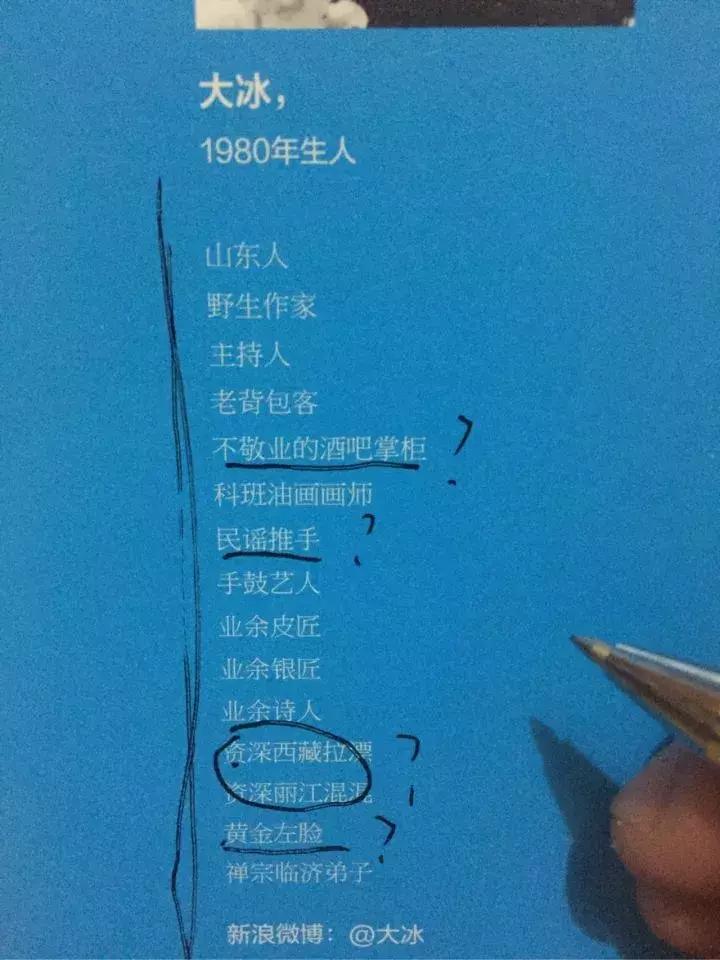 大冰，
1980年生人
山东人
野生作家
主持人
老背包客
不敬业的酒吧掌柜 ?
科班油画画师
民谣推手 ?
手鼓艺人
业余皮匠
业余银匠
业余诗人
资深西藏拉漂 ?
资深丽江混混
黄金左脸 ?
禅宗临济弟子
新浪微博：@大冰